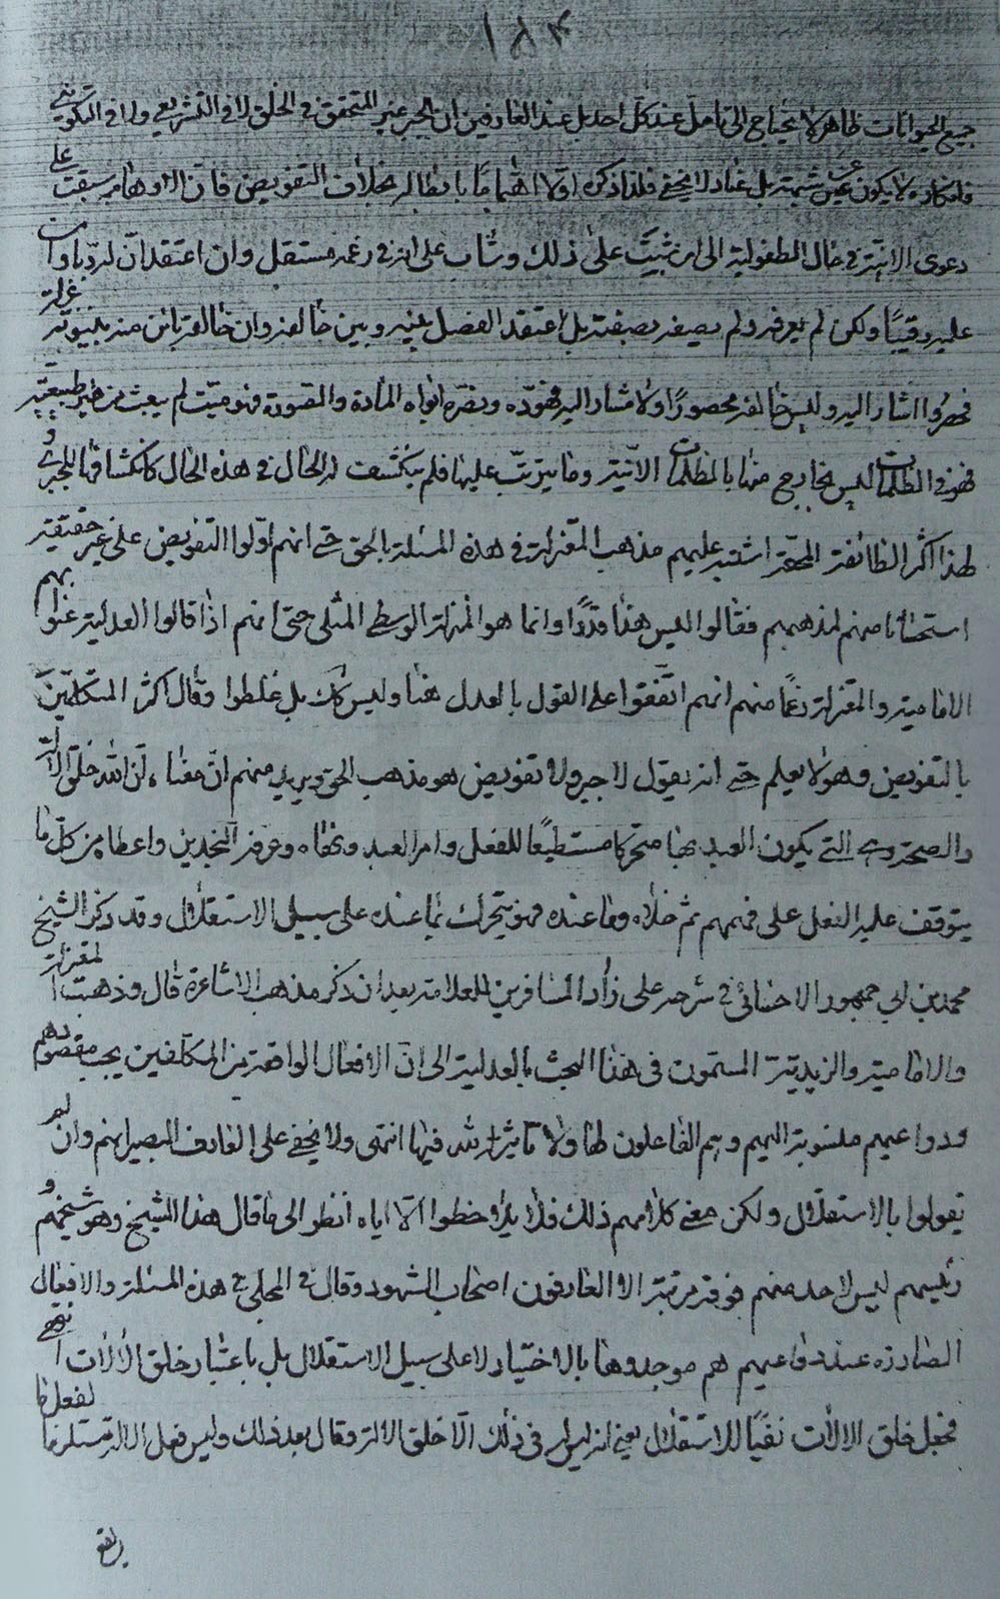 ١٨٤
جميع الحيوانات ظاهر لا يحتاج الى تامل عند كل احد بل عند العارفين ان الجبر غير المتحقق في الخلق لا في التشريعي ولا في التكويني
فانكاره لا يكون عن شبهة بل عناد لا يخفى فلذا ذكره اولا اهتماما بابطاله بخلاف التفويض فان الاوهام سبقت على
دعوى الانية في حال الطفولية الى ان تثبت على ذلك وشاب على انه في زعمه مستقل وان اعتقد ان له ربا وان
عليه رقيبا ولكن لم يعرفه ولم يصفه بصفته بل اعتقد الفصل بينه وبين خالقه وان خالقه بائن منه بينونة عزلة
اشار اليه وليس خالقه محصورا ولا مشار اليه ابواه المادة والصورة فهو ميت لم يبعث من قبر طبيعته
فهو في الظلمات ليس بخارج منها بالظلمات الانية وما يترتب عليها فلم ينكشف له الحال في هذه الحال كانكشافها للجبر و
لهذا اكثر الطائفة المحقة اشتبه عليهم مذهب المعتزلة في هذه المسئلة بالحق حتى انهم اولوا التفويض على غير حقيقته
استحسانا منهم لمذهبهم فقالوا ليس هذا قدرا وانما هو المنزلة الوسطى المثلى حتى انهم اذا قالوا العدلية عنوا بهم
الامامية والمعتزلة زعما منهم انهم اتفقوا على القول بالعدل هنا وليس كك بل غلطوا وقال اكثر المتكلمين
بالتفويض وهو لا يعلم حتى انه يقول لا جبر ولا تفويض هو مذهب الحق ويريد منهم ان معناه ان الله خلق الالات
والصحة وهي التي يكون العبد بها متحركا مستطيعا للفعل وامر العبد ونهاه وعرفه النجدين واعطاه من كل ما
يتوقف عليه الفعل على فهمهم ثم خلاه وما عنده فهو يتحرك بما عنده على سبيل الاستقلال وقد ذكر الشيخ
محمد بن ابي جمهور الاحسائي في شرحه على زاد المسافرين للعلامة بعد ان ذكر مذهب الاشاعرة قال وذهبت المعتزلة
والامامية والزيدية المسمون في هذا البحث بالعدلية الى ان الافعال الواقعة من المكلفين بحسب مقصودهم
ودواعيهم منسوبة اليهم وهم الفاعلون لها ولا تاثير لله فيها انتهى ولا يخفى على العارف البصير انهم وان لم
يقولوا بالاستقلال ولكن معنى كلامهم ذلك فلا يلاحظوا الا اياه انظر الى ما قال هذا الشيخ وهو شيخهم و
رئيسهم ليس لاحد منهم فوقه مرتبة الا العارفون اصحاب الشهود وقال في المجلي في هذه المسئلة والافعال
الصادرة عنه دواعيهم هم موجدوها بالاختيار لا على سبيل الاستقلال بل باعتبار خلق الالات انتهى
فجعل خلق الالات نفيا للاستقلال يعني انه ليس له في ذلك الا خلق الالة وقال بعد ذلك وليس فعل الالة مستلزما لفعل ما